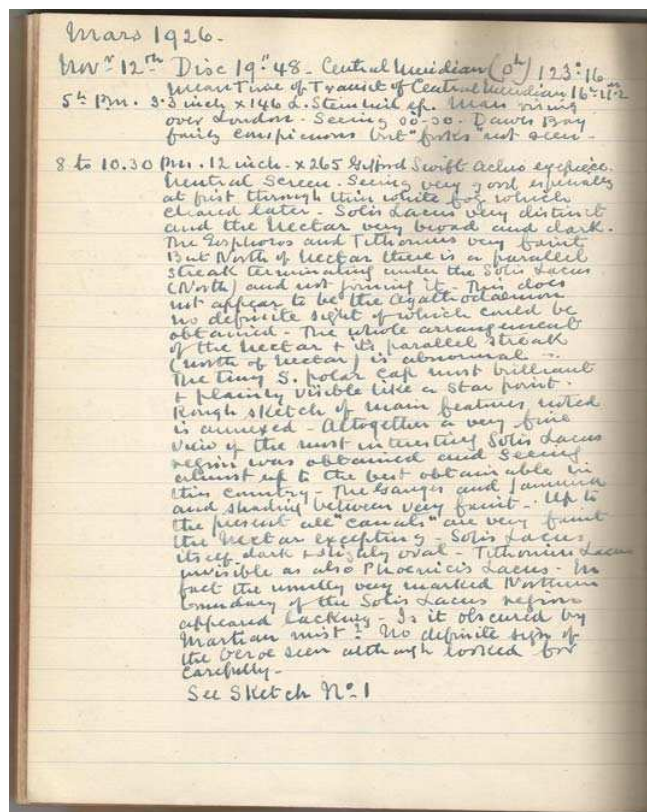 Mars 1926.
Novr 12th Disc 19".48 - Central Meridian (0h) 123°.16
Mean Time of Transit of Central Meridian 16h 11m.2
5h Pm. 3.3 inch x 146 d. Steinheil ep. Mars rising
over London. Seeing 00-00. Dawes Bay
fairly conspicuous but "forks" not seen -
8 to 10.30 Pm. 12 inch. x265 Gifford Swift Achro eyepiece.
Neutral Screen. Seeing very good especially
at first through thin white fog which
cleared later - Solis Lacus very distinct
and the Nectar very broad and dark.
The Eosphoros and Tithonius very faint
But North of Nectar there is a parallel
streak terminating under the Solis Lacus
(North) and not joining it. This does
not appear to be the Agathodaemon
no definite sight of which could be
obtained - The whole arrangement
of the Nectar + its parallel streak
(North of Nectar) is abnormal
The tiny S. polar cap most brilliant
+ plainly visible like a star point.
Rough sketch of main features noted
is annexed - Altogether a very fine
view of the most interesting Solis Lacus
region was obtained and seeing
almost up to the best obtainable in
this country - The Ganges and Jamuna
and shading between very faint - Up to
the present all "canals" are very faint
the Nectar excepting - Solis Lacus
itself dark + slightly oval - Tithonius Lacus
invisible as also Phoenicis Lacus - In
fact the usually very marked Northern
boundary of the Solis Lacus region
appeared lacking - Is it obscured by
Martian mist? No definite sign of
the seen although looked for
carefully -
See Sketch No. 1